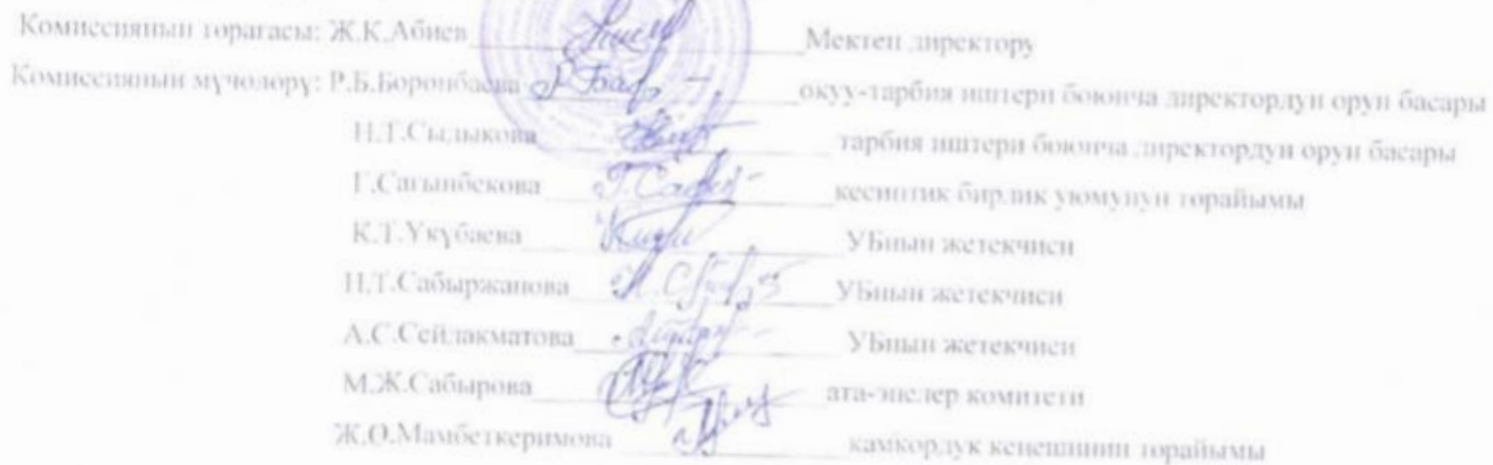 Комиссиянын торагасы: Ж.К.Абиев Мектеп директору
Комиссиянын мүчөлөрү: Р.Б.Боронбаева окуу-тарбия иштери боюнча директордун орун басары
Н.Т.Сыдыкова тарбия иштери боюнча директордун орун басары
Г.Сагынбекова кесиптик бирлик уюмунун торайымы
К.Т.Укубаева УБнын жетекчиси
Н.Т.Сабыржанова УБнын жетекчиси
А.С.Сейдакматова УБнын жетекчиси
М.Ж.Сабырова ата-энелер комитети
Ж.Ө.Мамбеткеримова камкордук кеңешинин торайымы